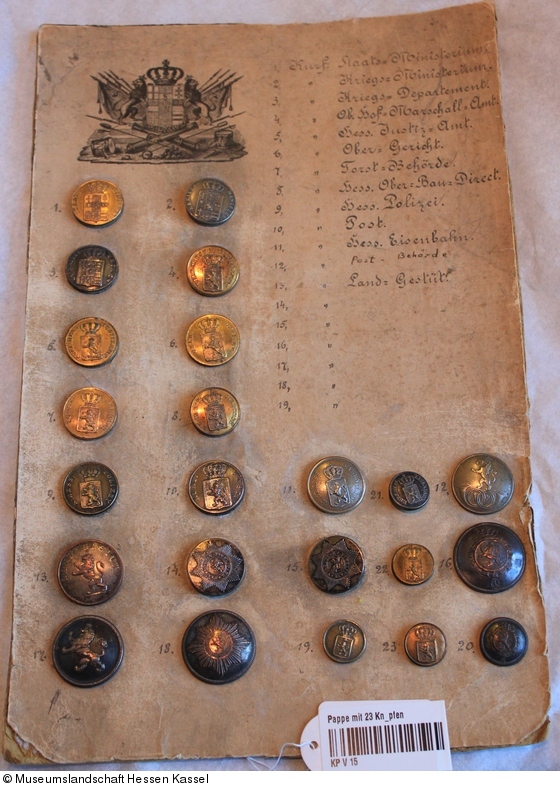 1 Kurf. Staats=Ministerium.
2, " Kriegs=Ministerium=
3, " Kriegs=Departement.
4, " Ob. Hof=Marschall=Amt.
5, " Hess. Justiz=Amt.
6, " Ober=Gericht.
7, " Forst=Behörde.
8, " Hess. Ober=Bau=Direct.
9, " Hess. Polizei.
10, " Post.
11, " Hess. Eisenbahn.
12, " Post - Behörde
13, " Land=Gestüt.
14, "
15, "
16, "
17, "
18, "
19, "
1. 2.
3. 4.
5. 6.
7. 8.
9. 10. 11. 21. 12.
13. 14. 15. 22. 16.
17. 18. 19. 23 20.
Pappe mit 23 Kn_pfen
KP V 15
© Museumslandschaft Hessen Kassel